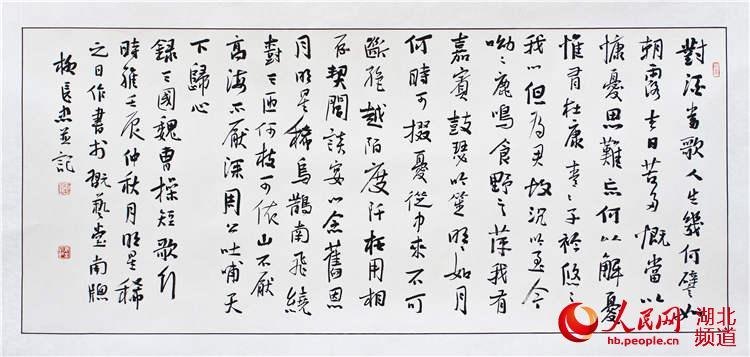 對酒當歌人生幾何譬如
朝露去日苦多慨當以
慷憂思難忘何以解憂
惟有杜康青〻子衿悠〻
我心但為君故沉吟至今
呦〻鹿鳴食野之苹我有
嘉賓鼓瑟吹笙明〻如月
何時可掇憂從中來不可
斷絕越陌度阡枉用相
存契闊談宴心念舊恩
月明星稀烏鵲南飛繞
對三匝何枝可依山不厭
高海不厭深周公吐哺天
下歸心
録三國魏曹操短歌行
時維壬辰仲秋月明星稀
之日作書於藝堂南牕
並記
人民网 湖北频道
hb.people.cn